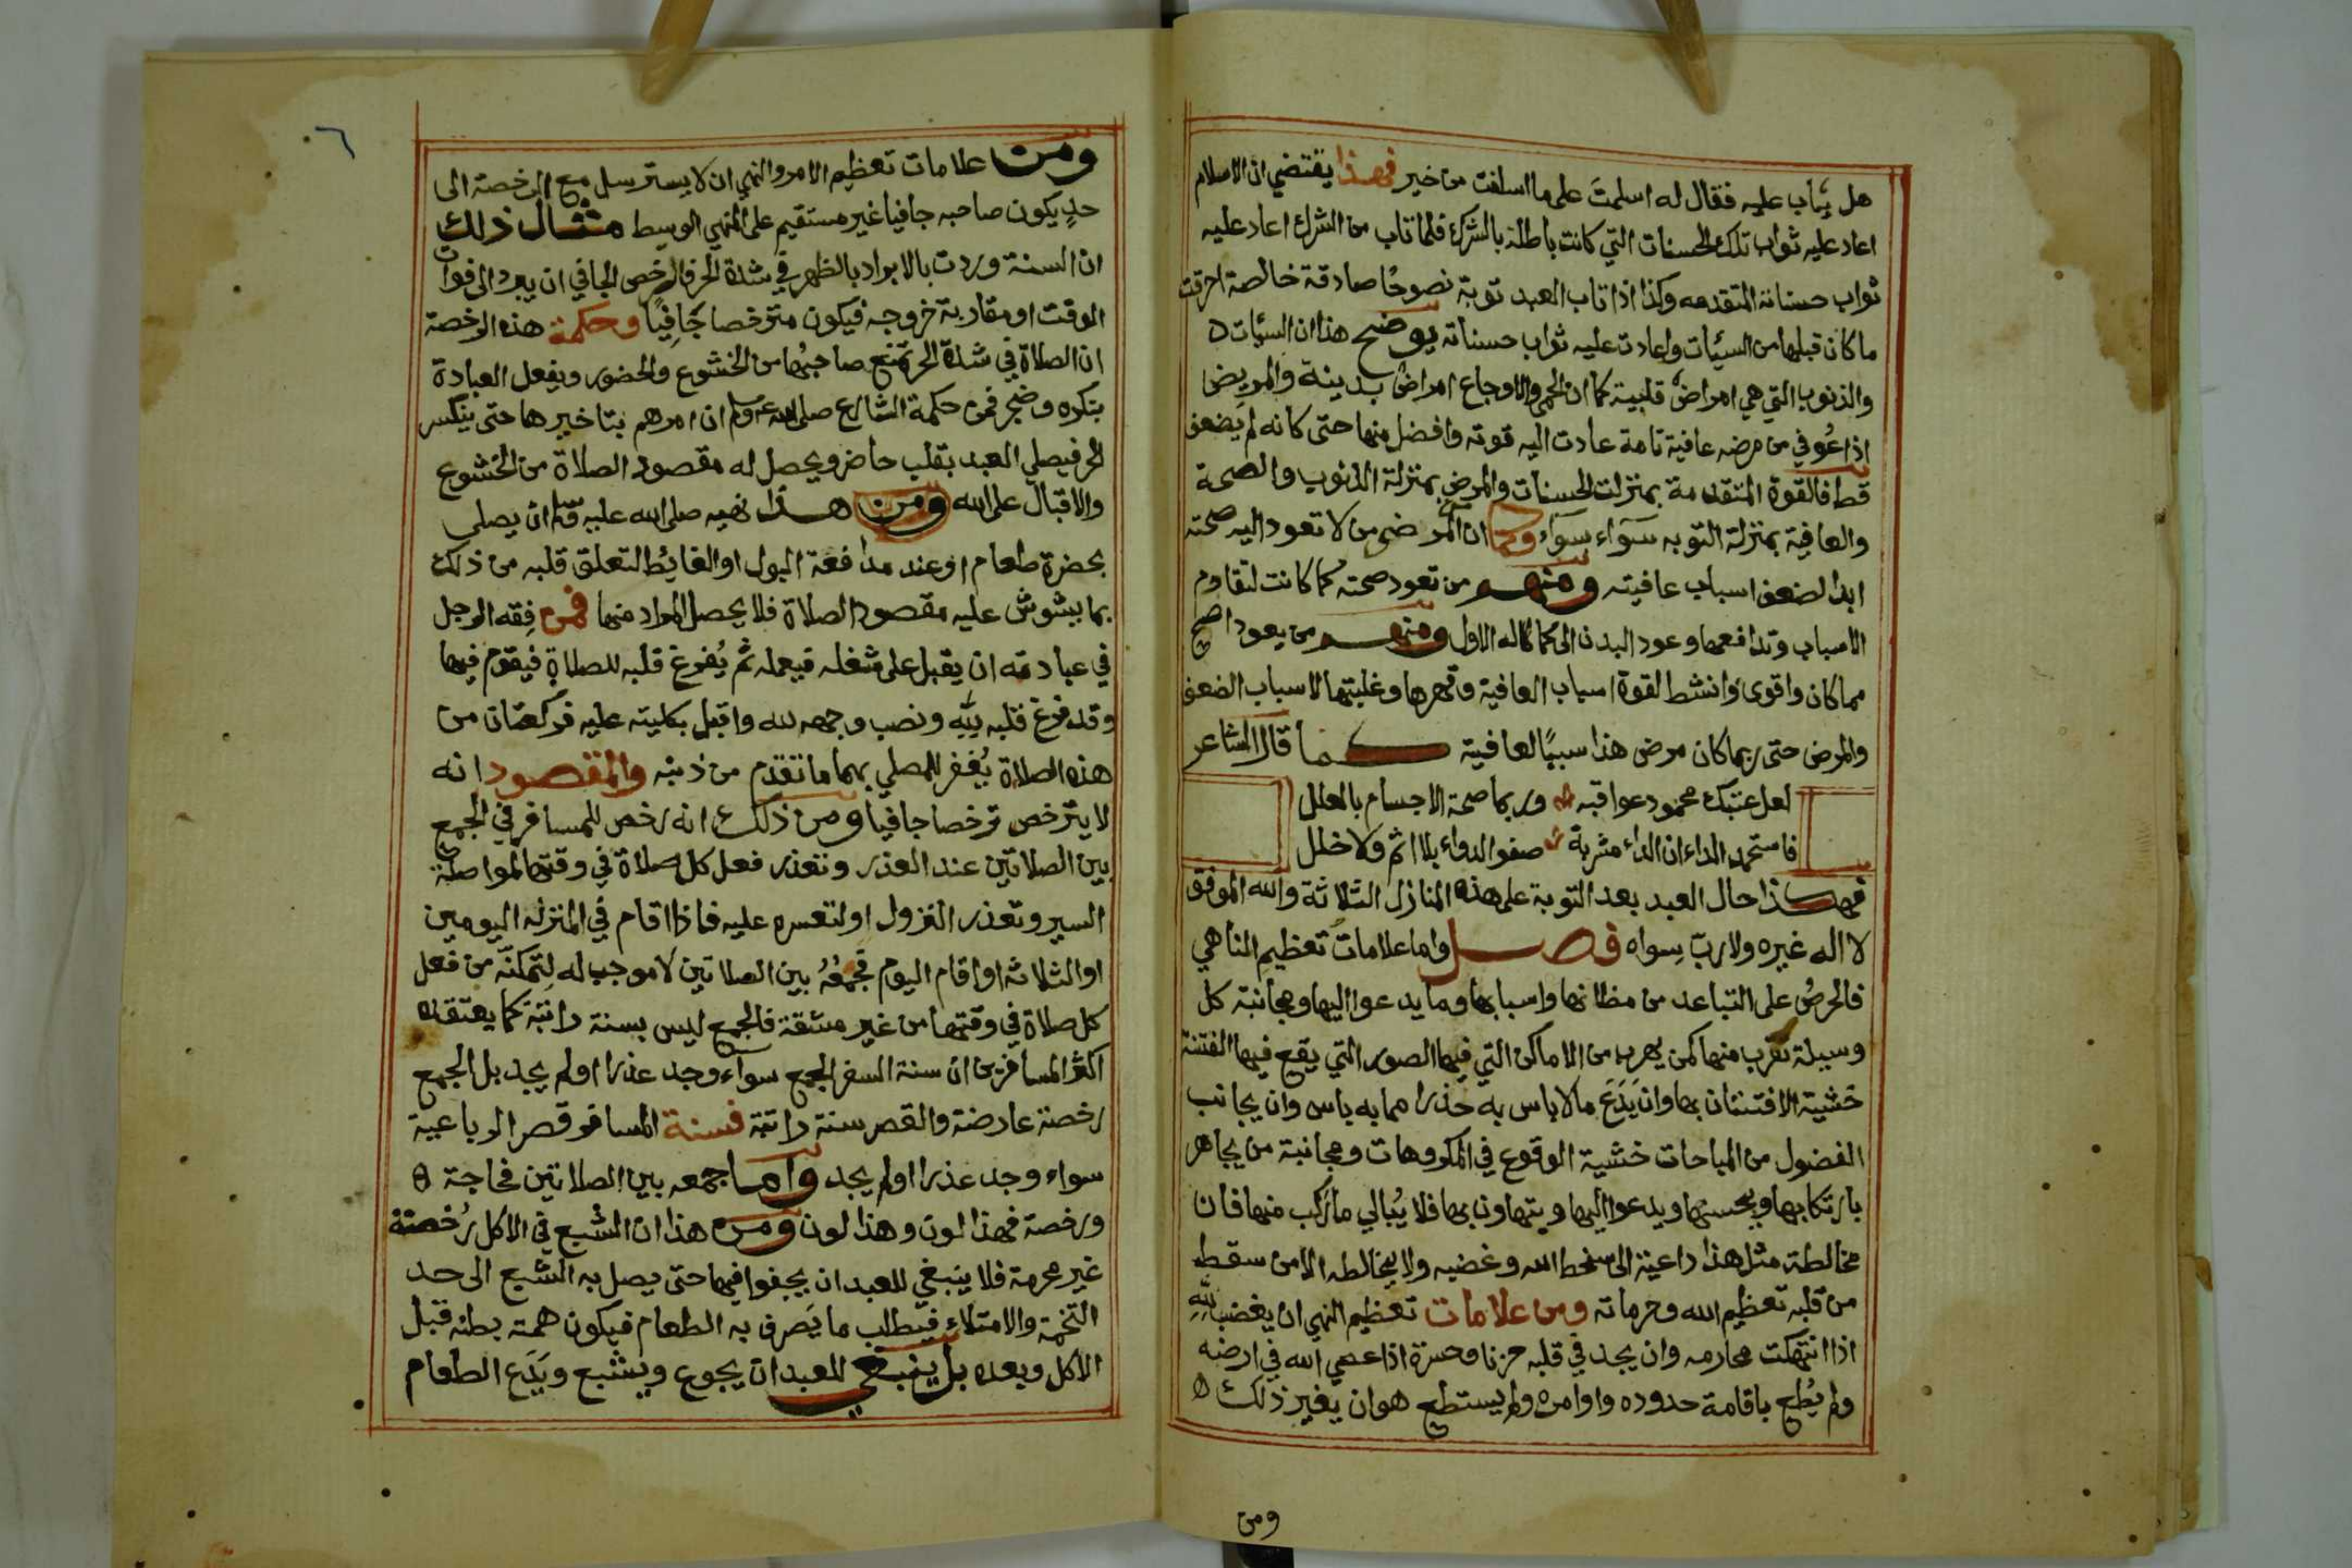 هل يثاب عليه فقال له اسلمتَ على ما اسلفت من خير فهذا يقتضي ان الاسلام
اعاد عليه ثواب تلك الحسنات التي كانت باطلة بالشرك فلما تاب من الشرك اعاد عليه
ثواب حسناته المتقدمه وكذا اذا تاب العبد توبة نصوحًا صادقة خالصة احرقت
ما كان قبلها من السيّات واعادت عليه ثواب حسناته يوضح هذا ان السيّات
والذنوب التي هي امراض قلبية كما ان الحمى والاوجاع امراض بدينة والمريض
اذا عُوفي من مرضه عافية تامة عادت اليه قوته وافضل منها حتى كانه لم يَضعف
قط فالقوة المتقدمة بمنزلت الحسنات والمرض بمنزلة الذنوب والصحة
والعافية بمنزلة التوبه سوآء سوآء وكما ان المرضى من لا تعود اليه صحته
ابدا لضعف اسباب عافيته ومنهم من تعود صحته كما كانت لتقاوم
الاسباب وتدافعها وعود البدن الى كما كاله الاول ومنهم من يعود اصح
مما كان واقوى وانشط لقوة اسباب العافية وقهرها وغلبتها لاسباب الضعف
والمرض حتى ربما كان مرض هذا سببًا لعافية كما قال الشاعر
لعل عتبك محمود عواقبه وربما صحة الاجسام بالعلل
فاستحمد الداء ان الداء مشربة صفو الدواء بلا اثم ولا خلل
فهكذا حال العبد بعد التوبة على هذه المنازل الثلاثة والله الموفق
لا اله غيره ولا ربّ سِواه فصل واما علامات تعظيم المناهي
فالحرصُ على التباعد من مظانها واسبابها وما يدعوا اليها ومجانبة كل
وسيلة تقرب منها كمن يهرب من الاماكن التي فيها الصور التي يقع فيها الفتنة
خشية الافتتان بها وان يَدَعَ مالا باس به حذرا مما به باس وان يجانب
الفضول من المباحات خشية الوقوع في المكروهات ومجانبة من يجاهر
بارتكابها ويحسنها ويدعوا اليها ويتهاون بها فلا يُبالي ما رَكب منها فان
مخالطة مثل هذا داعية الى سخط الله وغضبه ولا يخالطه الا من سقط
من قلبه تعظيم الله وحرماته ومن علامات تعظيم النهي ان يغضب للهِ
اذا انتهكت محارمه وان يجد في قلبه حزنا وحسرة اذا عصي الله في ارضه
ولم يُطع باقامة حدوده واوامره ولم يستطع هو ان يغير ذلك
ومن
٦
ومن علامات تعظيم الامر والنهي ان لا يسترسل مع الرخصة الى
حدٍ يكون صاحبه جافيا غير مستقيم على المنهج الوسيط مثال ذلك
ان السنة وردت بالابراد بالظهر في شدة الحر فالترخص الجافي ان يبرد الى فوات
الوقت او مقاربة خروجه فيكون مترخصا جَافِيًا وحكمة هذه الرخصة
ان الصلاة في شدة الحر تمنع صاحبُها من الخشوع والحضور ويفعل العبادة
بتكره وضجر فمن حكمة الشارع صلى الله عليه وسلم ان امرهم بتاخيرها حتى ينكسر
الحر فيصلي العبد بقلب حاضر ويحصل له مقصود الصلاة من الخشوع
والاقبال على الله ومن هذا نهيه صلى الله عليه وسلم ان يصلى
بحضرة طعام او عند مدافعة البول او الغائط لتعلق قلبه من ذلك
بما يشوش عليه مقصود الصلاة فلا يحصل المراد منها فمن فِقه الرجل
في عبادته ان يقبل على شغله فيعمله ثم يُفرغ قلبه للصلاة فيقوم فيها
وقد فرغ قلبه لِلّهِ ونصب وجهه لله واقبل بكليته عليه فركعتان من
هذه الصلاة يُغفر للمصلي بهما ما تقدم من ذنبه والمقصود انه
لا يترخص ترخصا جافيا ومن ذلك انه رخص للمسافر في الجمع
بين الصلاتين عند العذر وتعذر فعل كل صلاة في وقتها لمواصلة
السير وتعذر النزول او لتعسره عليه فاذا اقام في المنزله اليومين
او الثلاثة او اقام اليوم فجمْعُهُ بين الصلاتين لا موجب له لِتمكنّه من فعل
كل صلاة في وقتها من غير مشقة فالجمع ليس بسنة راتبة كما يعتقده
اكثر المسافرين ان سنة السفر الجمع سوآء وجد عذرا اولم يجد بل الجمع
رخصة عارضة والقصر سنة راتبة فسنة المسافر قصر الرباعية
سواء وجد عذرا اولم يجد واما جمعه بين الصلاتين فحاجة
ورخصة فهذا لون وهذا لون ومن هذا ان الشبع في الاكل رُخصة
غير محرمة فلا ينبغي للعبد ان يجفوا فيها حتى يصل به الشبع الى حد
التخمة والامتلاء فيتطلب ما يَصرف به الطعام فيكون همته بطنه قبل
الاكل وبعده بل ينبغي للعبد ان يجوع ويشبع ويَدَع الطعام